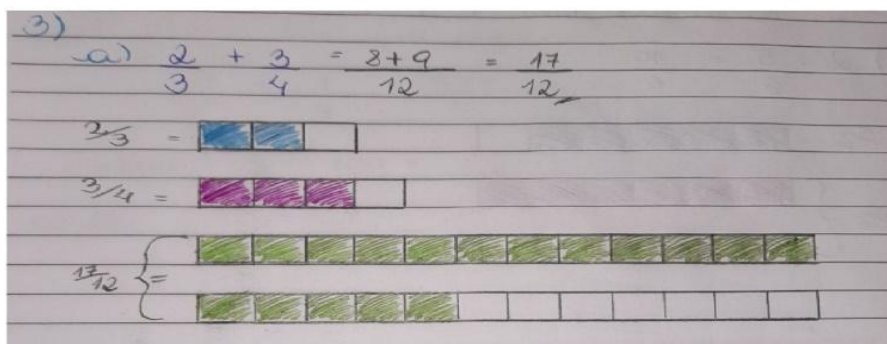 3)
a) 2/3 + 3/4 = 8+9/12 = 17/12
2/3 =
3/4 =
17/12 { =